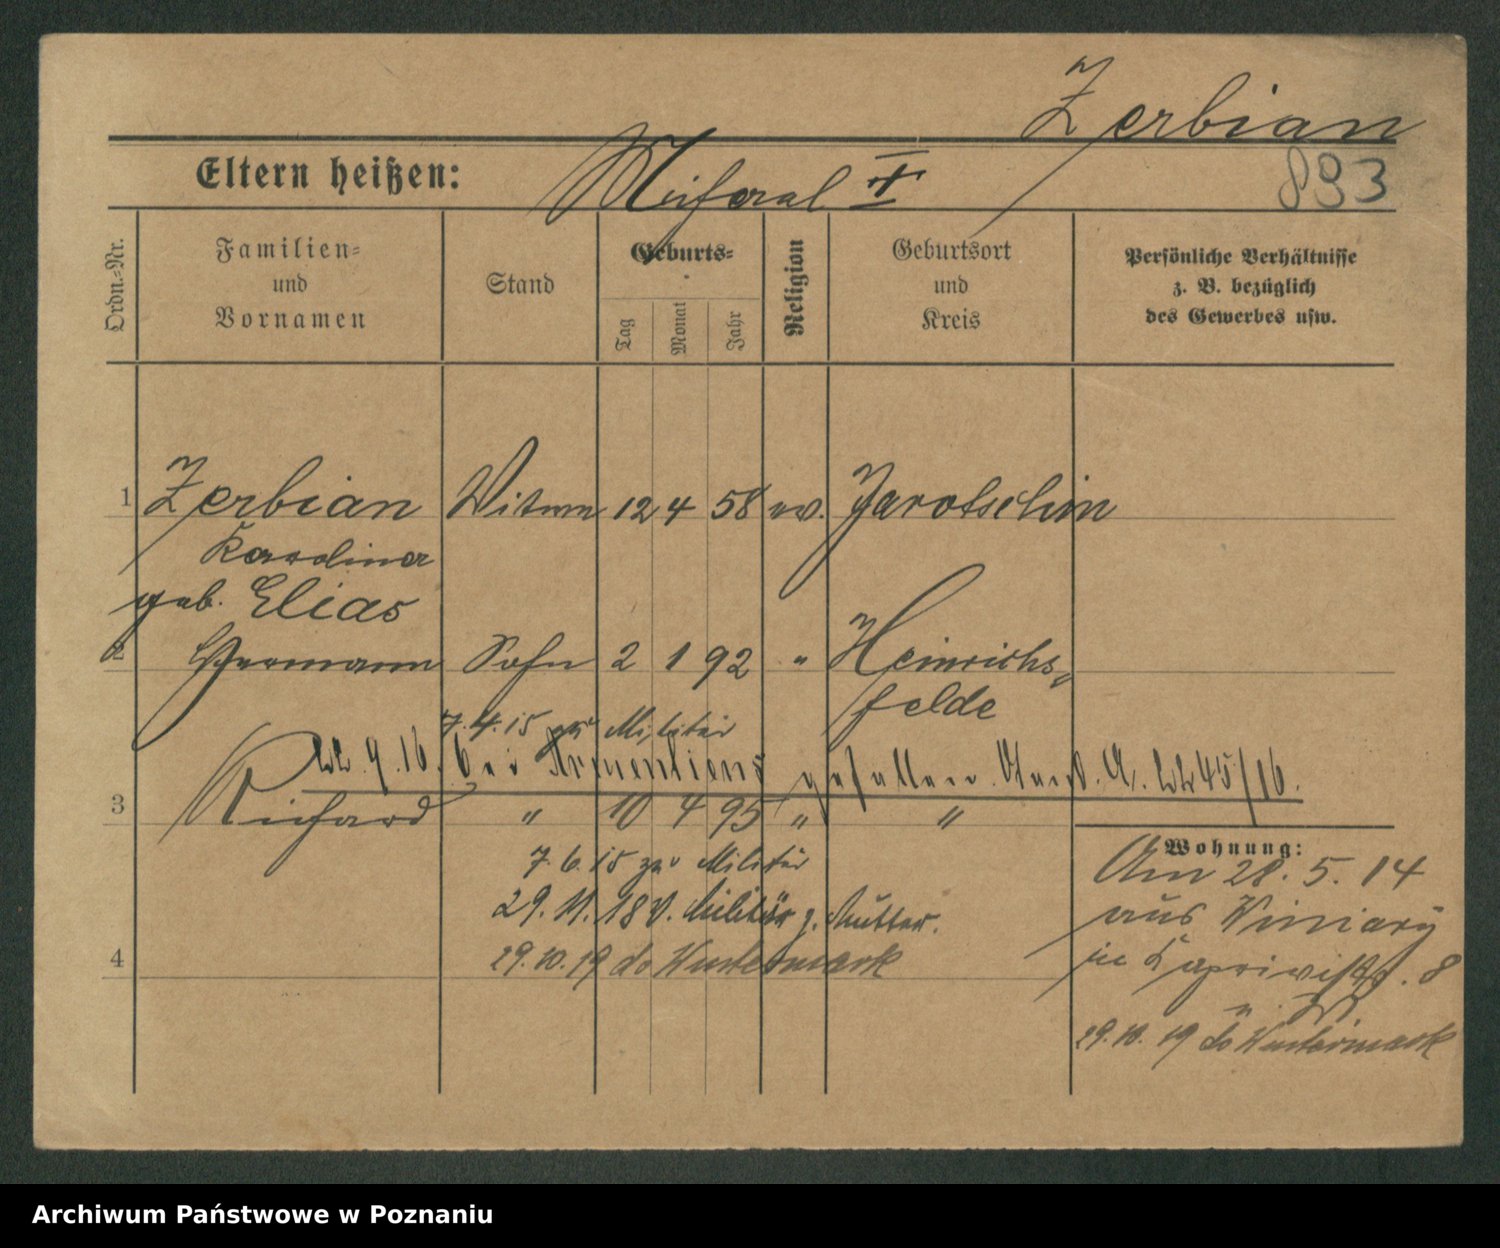 Zerbian
Eltern heißen: Michael I †
893
Ordn.=Nr.
Familien=
und
Vornamen
Stand
Geburts=
Tag
Monat
Jahr
Religion
Geburtsort
und
Kreis
Persönliche Verhältnisse
z. B. bezüglich
des Gewerbes usw.
1 Zerbian Witwe 12 4 58 ev. Jarotschin
Karoline
geb. Elias
2 Hermann Sohn 2 1 92 " Heinrichs=
felde
7.4.15 zu Militär
9.16. bei Armentiens gefallen. 45/16.
3 Richard " 10 4 95 " "
7.6.15 zu Militär
29.11.18 v. Militär z. Mutter.
4 29.10.19 do Wustermark
Wohnung:
Am 28.5.14
aus Winiary
in 8
29.10.19 do Wustermark
Archiwum Państwowe w Poznaniu